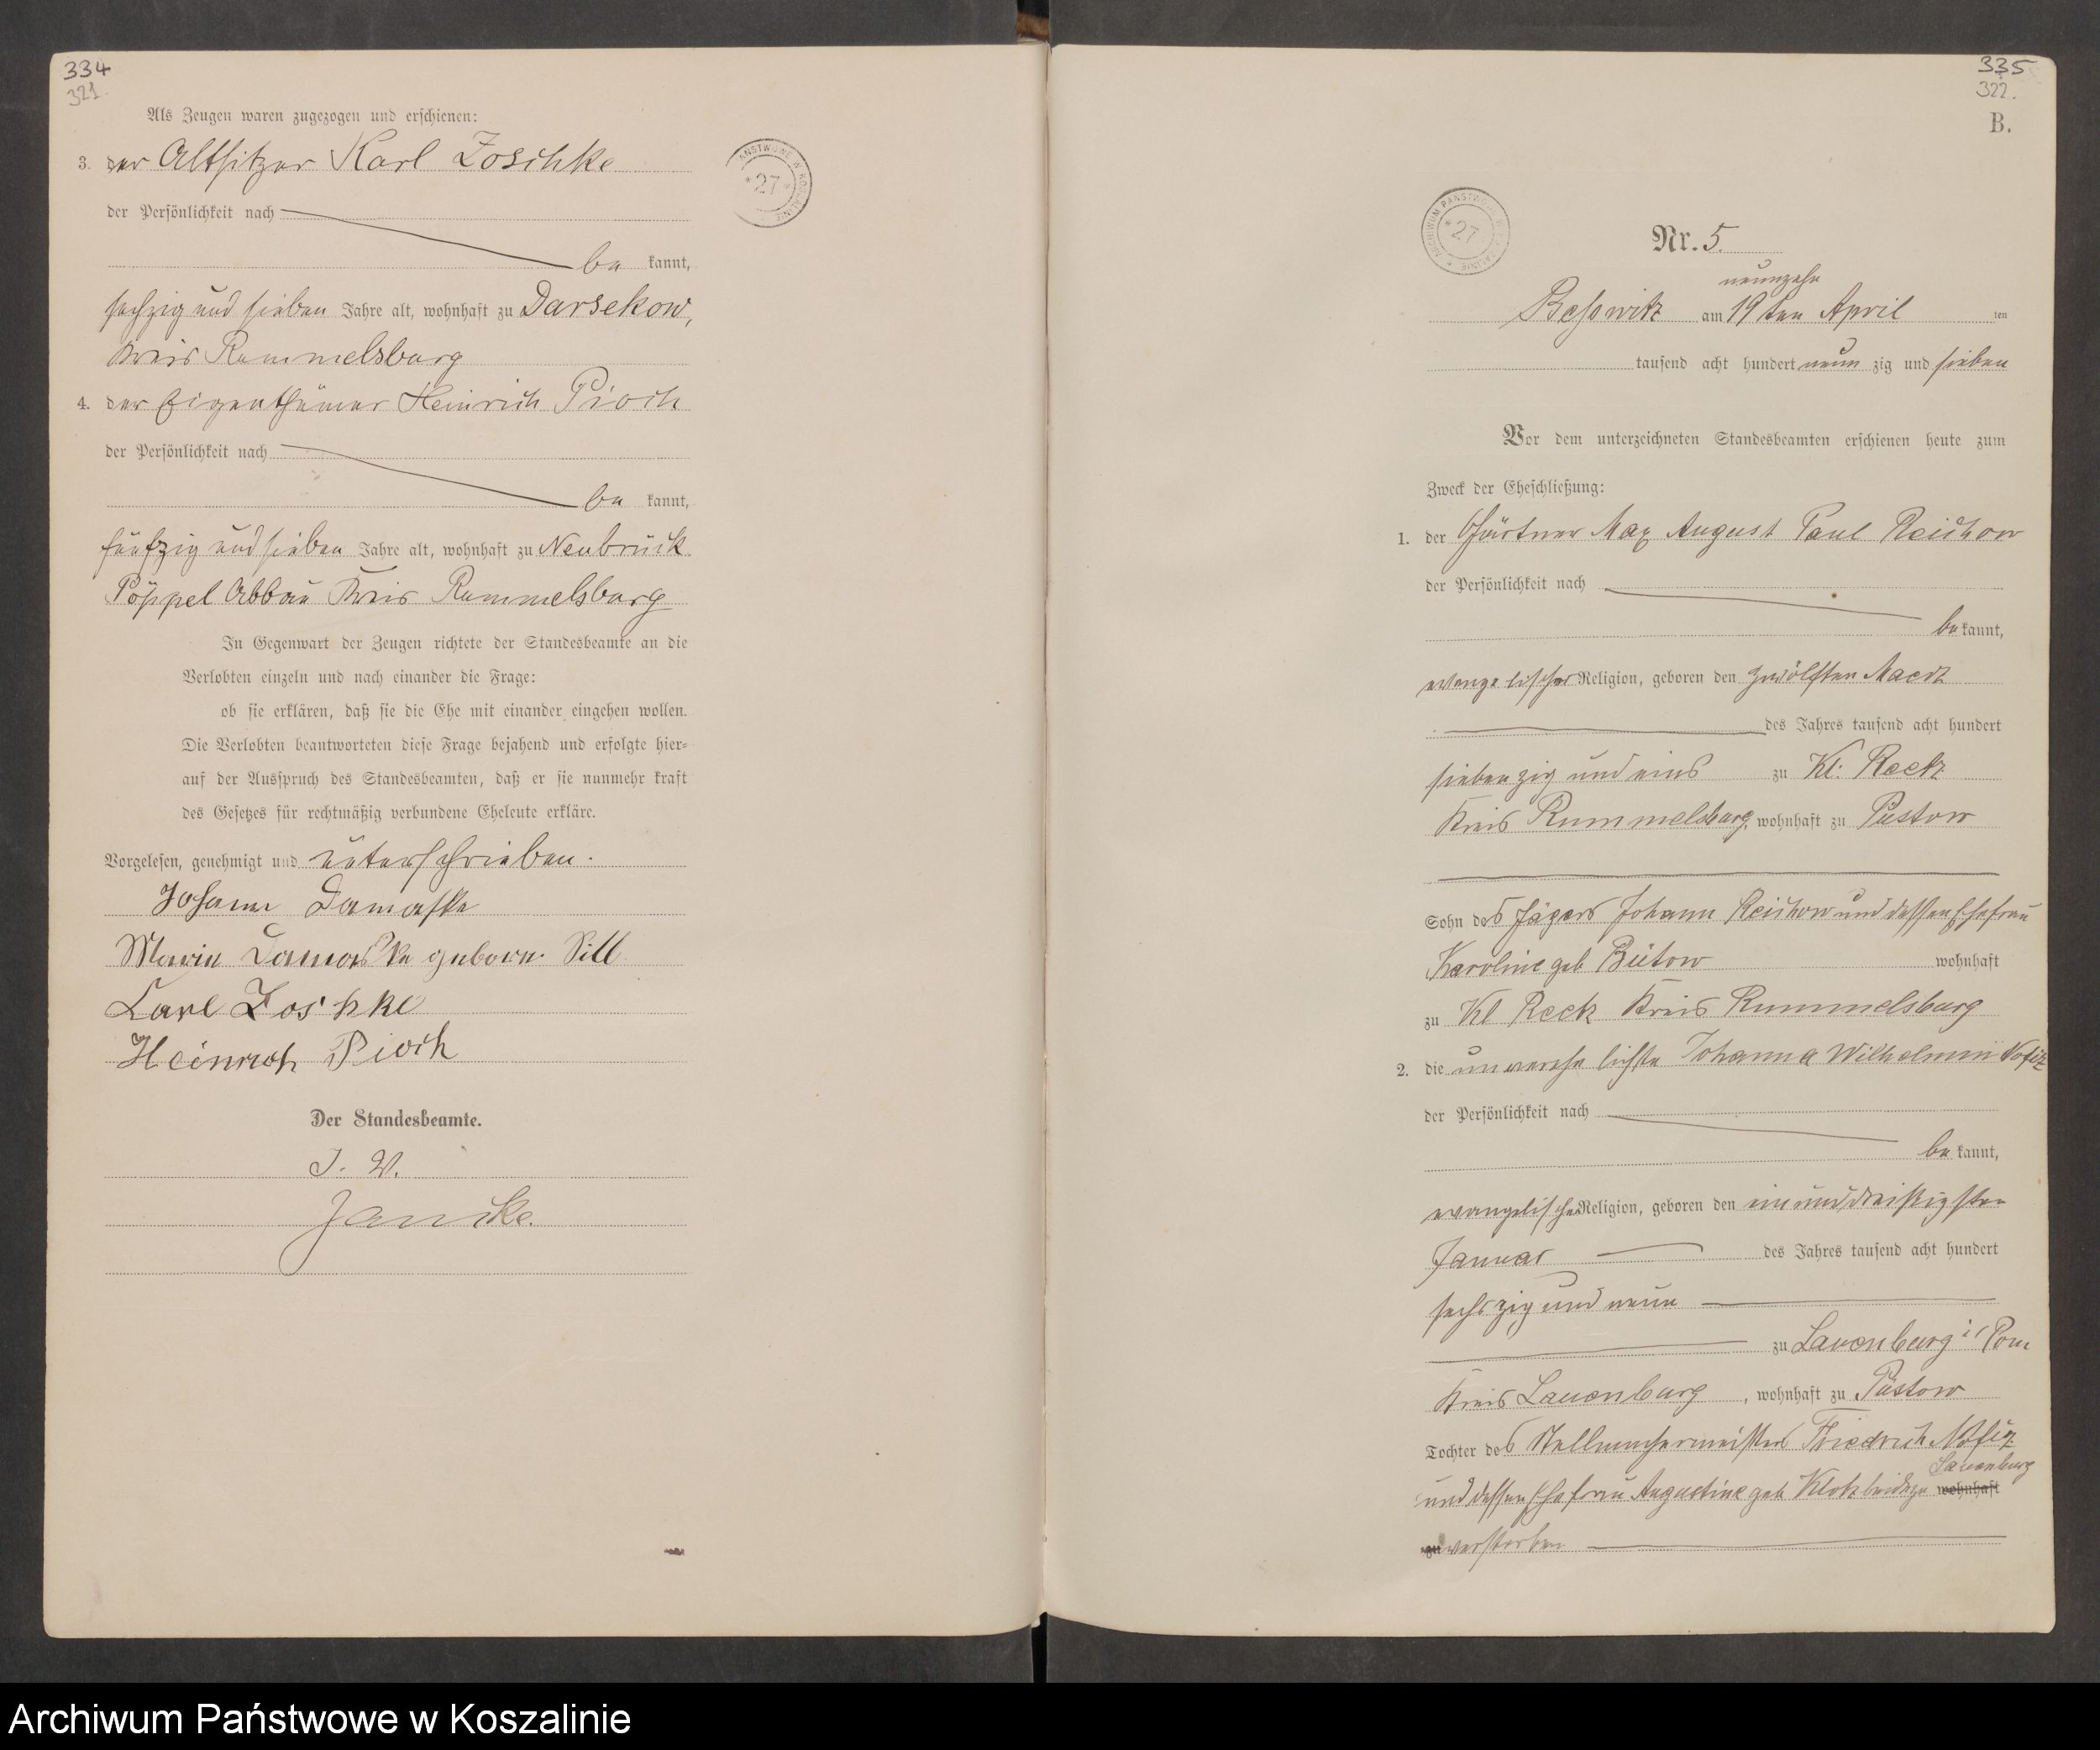 334
321.
Als Zeugen waren zugezogen und erschienen:
3. der Altsitzer Karl Zoschke
der Persönlichkeit nach
be kannt,
sechzig und sieben Jahre alt, wohnhaft zu Darsekow,
Kreis Rummelsburg
4. der Eigenthümer Heinrich Pioch
der Persönlichkeit nach
be kannt,
fünfzig und sieben Jahre alt, wohnhaft zu Neubrück
Pöppel Abbau Kreis Rummelsburg
In Gegenwart der Zeugen richtete der Standesbeamte an die
Verlobten einzeln und nach einander die Frage:
ob sie erklären, daß sie die Ehe mit einander eingehen wollen.
Die Verlobten beantworteten diese Frage bejahend und erfolgte hier=
auf der Ausspruch des Standesbeamten, daß er sie nunmehr kraft
des Gesetzes für rechtmäßig verbundene Eheleute erkläre.
Vorgelesen, genehmigt und unterschrieben.
Johann Damaske
Marie Damaske geborn. Sill
Carl Zoschke
Heinrich Pioch
Der Standesbeamte.
J. V.
Jancke.
ANSTWOWE W KOSZALINIE
* 27 *
335
322.
B.
ARCHIWUM PAŃSTWOWE W KOSZALINIE
* 27
Nr. 5.
neunzehn
Beßwitz am 19 ten April ten
tausend acht hundert neun zig und sieben
Vor dem unterzeichneten Standesbeamten erschienen heute zum
Zweck der Eheschließung:
1. der Gärtner Max August Paul Reichow
der Persönlichkeit nach
be kannt,
evangelischer Religion, geboren den zwölften Maerz
des Jahres tausend acht hundert
siebenzig und eins zu Kl. Reetz
Kreis Rummelsburg, wohnhaft zu Püstow
Sohn des Jägers Johann Reichow und dessen Ehefrau
Karoline geb Bütow wohnhaft
zu Kl Reetz Kreis Rummelsburg
2. die unverehelichte Johanna Wilhelmine
der Persönlichkeit nach
be kannt,
evangelischer Religion, geboren den ein und dreißigsten
Januar des Jahres tausend acht hundert
sechszig und neun
zu Lauenburg i/ Pom
Kreis Lauenburg, wohnhaft zu Püstow
Tochter des Stellmachermeisters Friedrich
Lauenburg
und dessen Ehefrau Augustine geb wohnhaft
zu verstorben
Archiwum Państwowe w Koszalinie